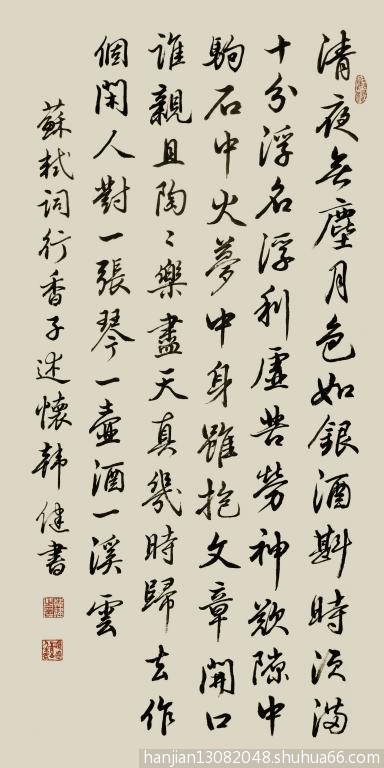 清夜無塵月色如銀酒斟時須滿
十分浮名浮利虛苦勞神歎隙中
駒石中火夢中身雖抱文章開口
誰親且陶〻樂盡天真幾時歸去作
個閑人對一張琴一壺酒一溪雲
蘇軾詞行香子述懷韓健書
hanjian13082048.shuhua66.com